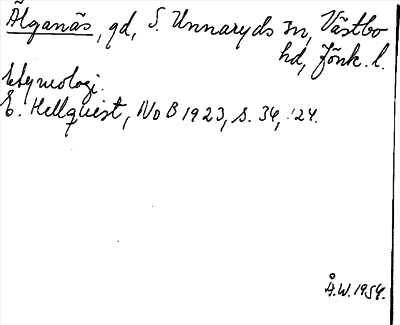 Älganäs, gd, S. Unnaryds sn, Västbo
hd, Jönk. l.
Etymologi.
E. Hellquist, NoB 1923, s. 34, '24.
Å.W. 1954.